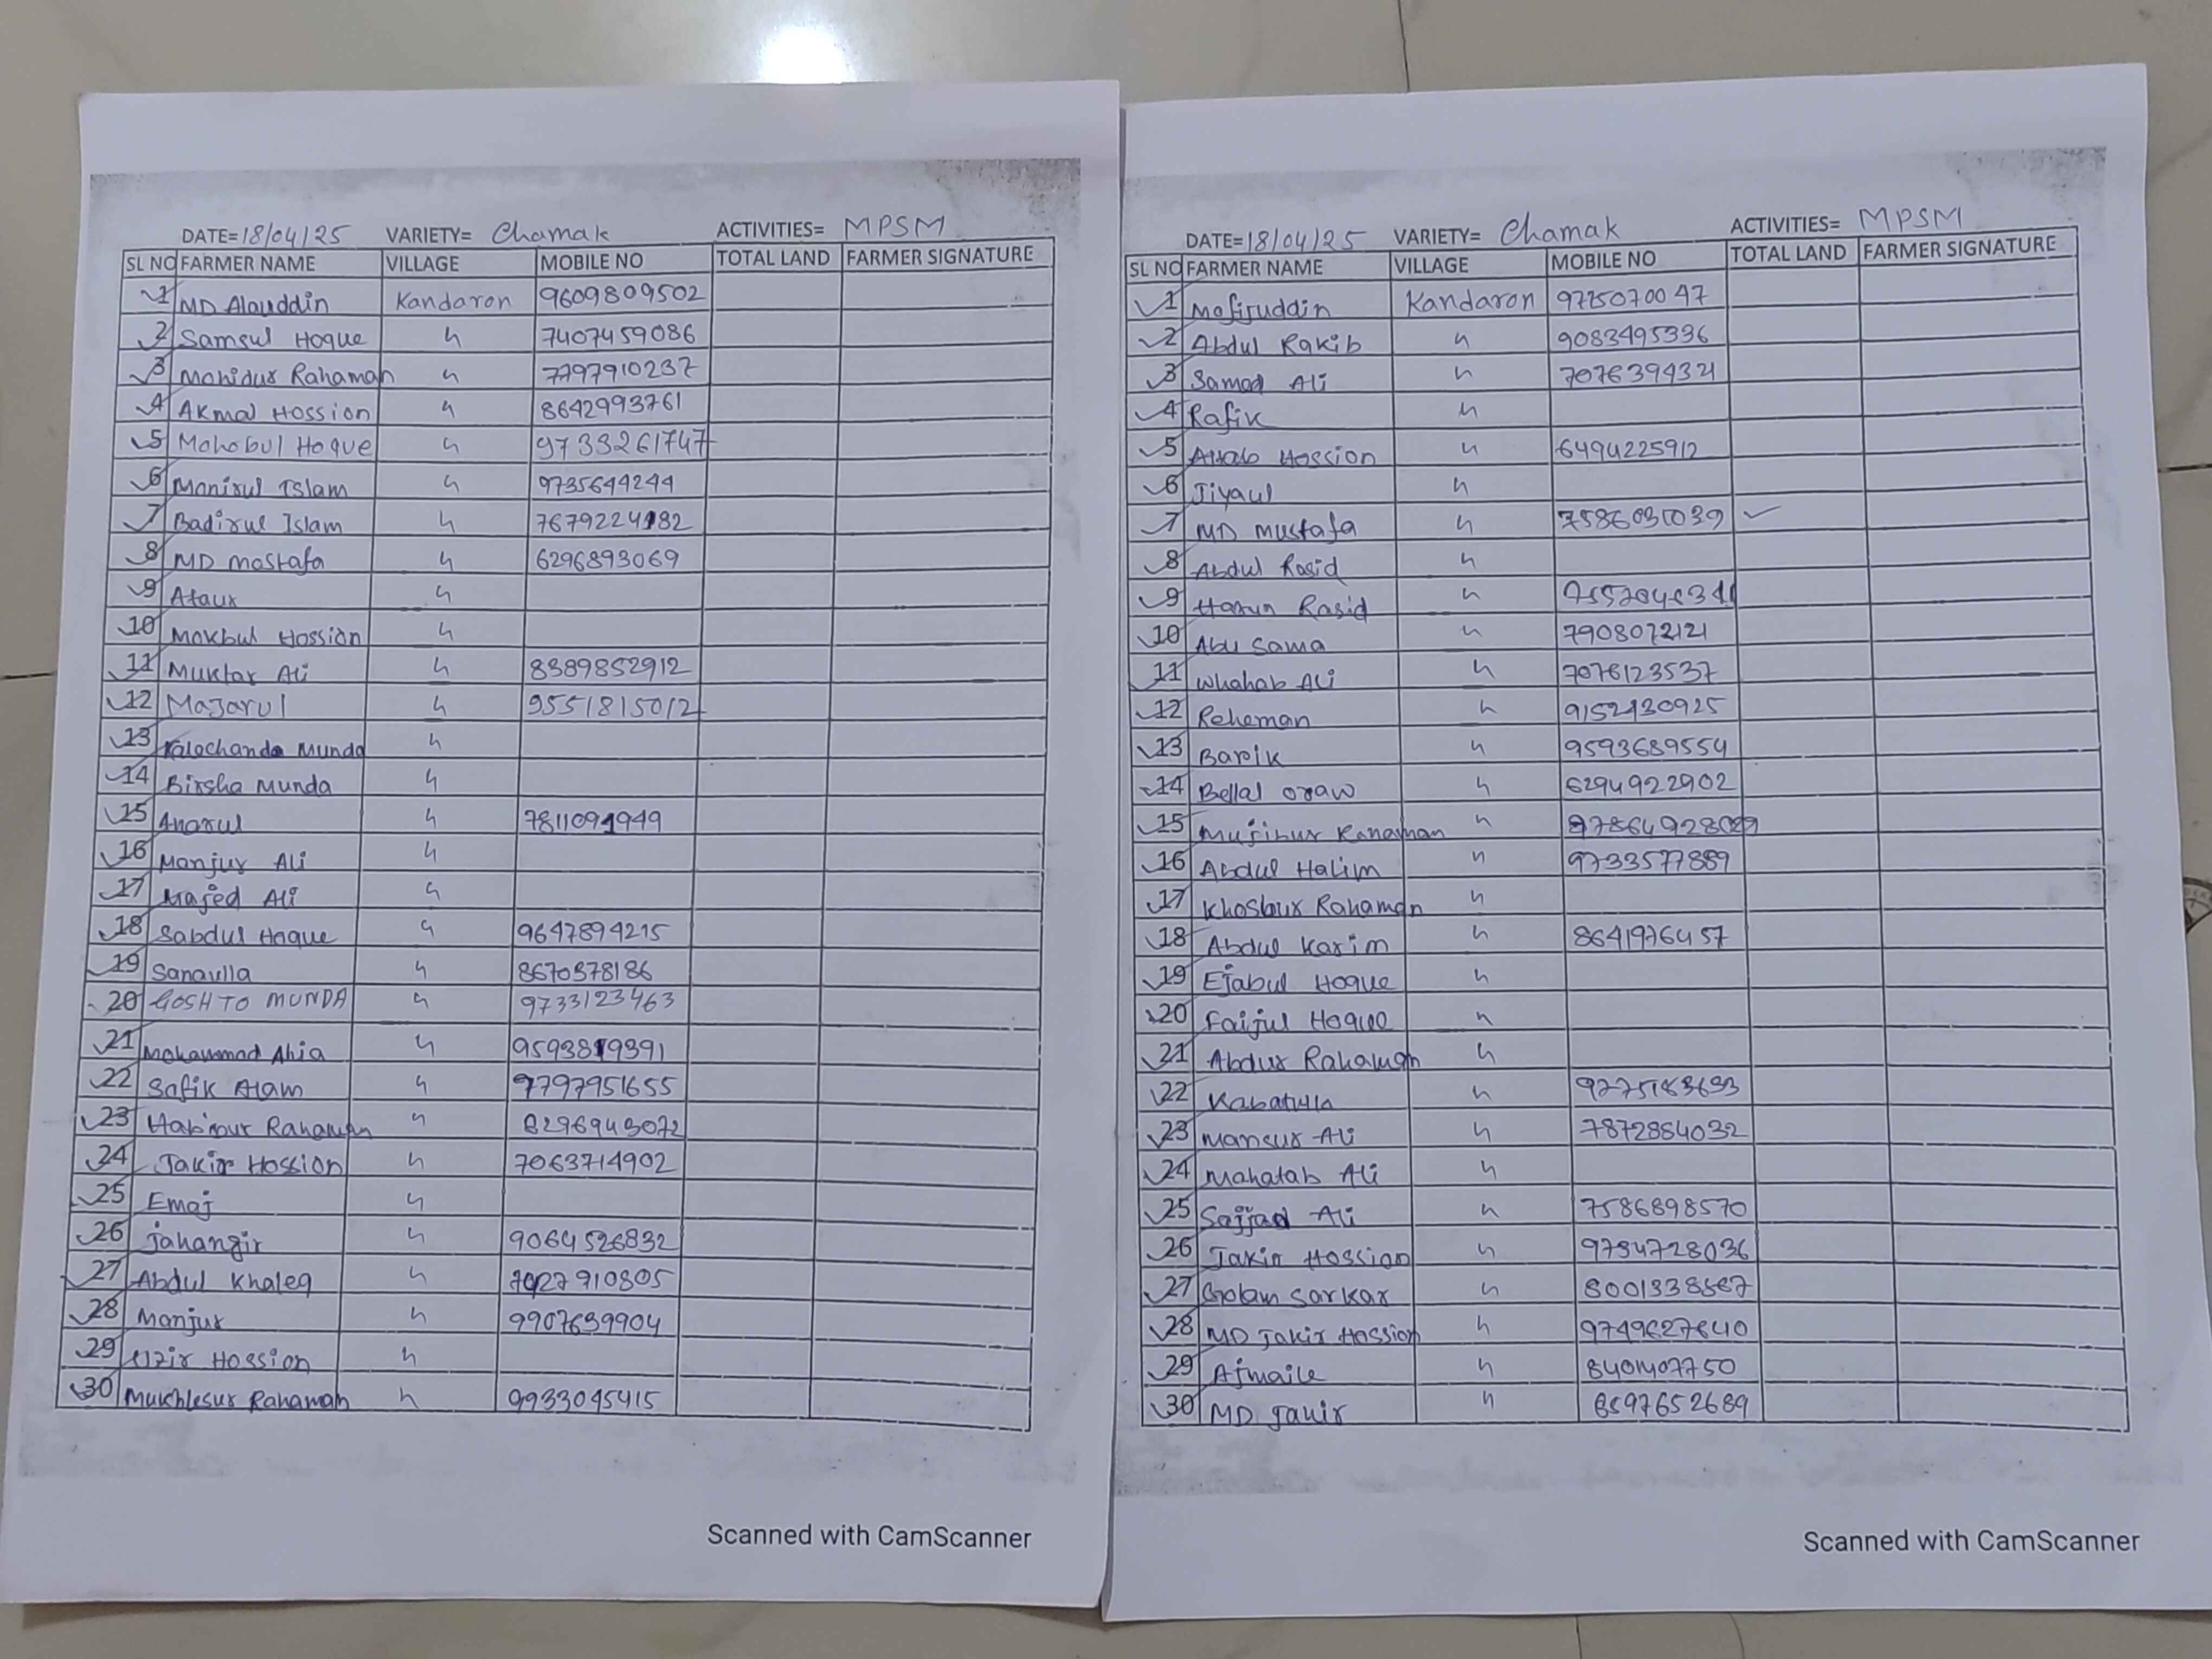 DATE=18/04/25 VARIETY= Chamak ACTIVITIES= MPSM
SL NO FARMER NAME VILLAGE MOBILE NO TOTAL LAND FARMER SIGNATURE
1 MD Alauddin Kandaron 9609809502
2 Samsul Hoque 〃 7407459086
3 Mohidur Rahaman 〃 7797910237
4 Akmal Hossion 〃 8642993761
5 Mohobul Hoque 〃 9733261747
6 Monirul Islam 〃 9735644244
7 Badirul Islam 〃 7679224182
8 MD mostafa 〃 6296893069
9 Ataur 〃
10 Mokbul Hossion 〃
11 Muktar Ali 〃 8389852912
12 Majarul 〃 9551815012
13 Kalochando Munda 〃
14 Birsha Munda 〃
15 Anarul 〃 7811091949
16 Manjur Ali 〃
17 Majed Ali 〃
18 Sabdul Hoque 〃 9647894215
19 Sanaulla 〃 8670378186
20 GOSHTO MUNDA 〃 9733123463
21 Mohammad Ahia 〃 9593819391
22 Safik Alam 〃 9797951655
23 Habibur Rahaman 〃 8296943072
24 Jakir Hossion 〃 7063714902
25 Emaj 〃
26 Jahangir 〃 9064526832
27 Abdul Khaleq 〃
28 Manjur 〃 9907639904
29 Uzir Hossion 〃
30 Mukhlesur Rahaman 〃 9933045415
Scanned with CamScanner
DATE=18/04/25 VARIETY= Chamak ACTIVITIES= MPSM
SL NO FARMER NAME VILLAGE MOBILE NO TOTAL LAND FARMER SIGNATURE
1 Mofijuddin Kandaron 9775070047
2 Abdul Rakib 〃 9083495336
3 Samad Ali 〃 7076394321
4 Rafik 〃
5 Attab Hossion 〃 6494225912
6 Jiyaul 〃
7 MD Mustafa 〃 ✓
8 Abdul Rasid 〃
9 Harun Rasid 〃
10 Abu Sama 〃 7908072121
11 Whahab Ali 〃 7076123537
12 Reheman 〃 9152430925
13 Barik 〃 9593689554
14 Bellal oraw 〃 6294922902
15 Mujibur Rahaman 〃
16 Abdul Halim 〃 9733577889
17 Khosbur Rahaman 〃
18 Abdul Karim 〃 8641976457
19 Ejabul Hoque 〃
20 Faijul Hoque 〃
21 Abdur Rahaman 〃
22 Kabatulla 〃 9275183633
23 Mansur Ali 〃 7872884032
24 Mahatab Ali 〃
25 Sajjad Ali 〃 7586898570
26 Jakir Hossion 〃 9794728036
27 Golam Sarkar 〃 8001338587
28 MD Jakir Hossion 〃 9749627640
29 Ajmaile 〃 8401407750
30 MD Jakir 〃 8597652689
Scanned with CamScanner